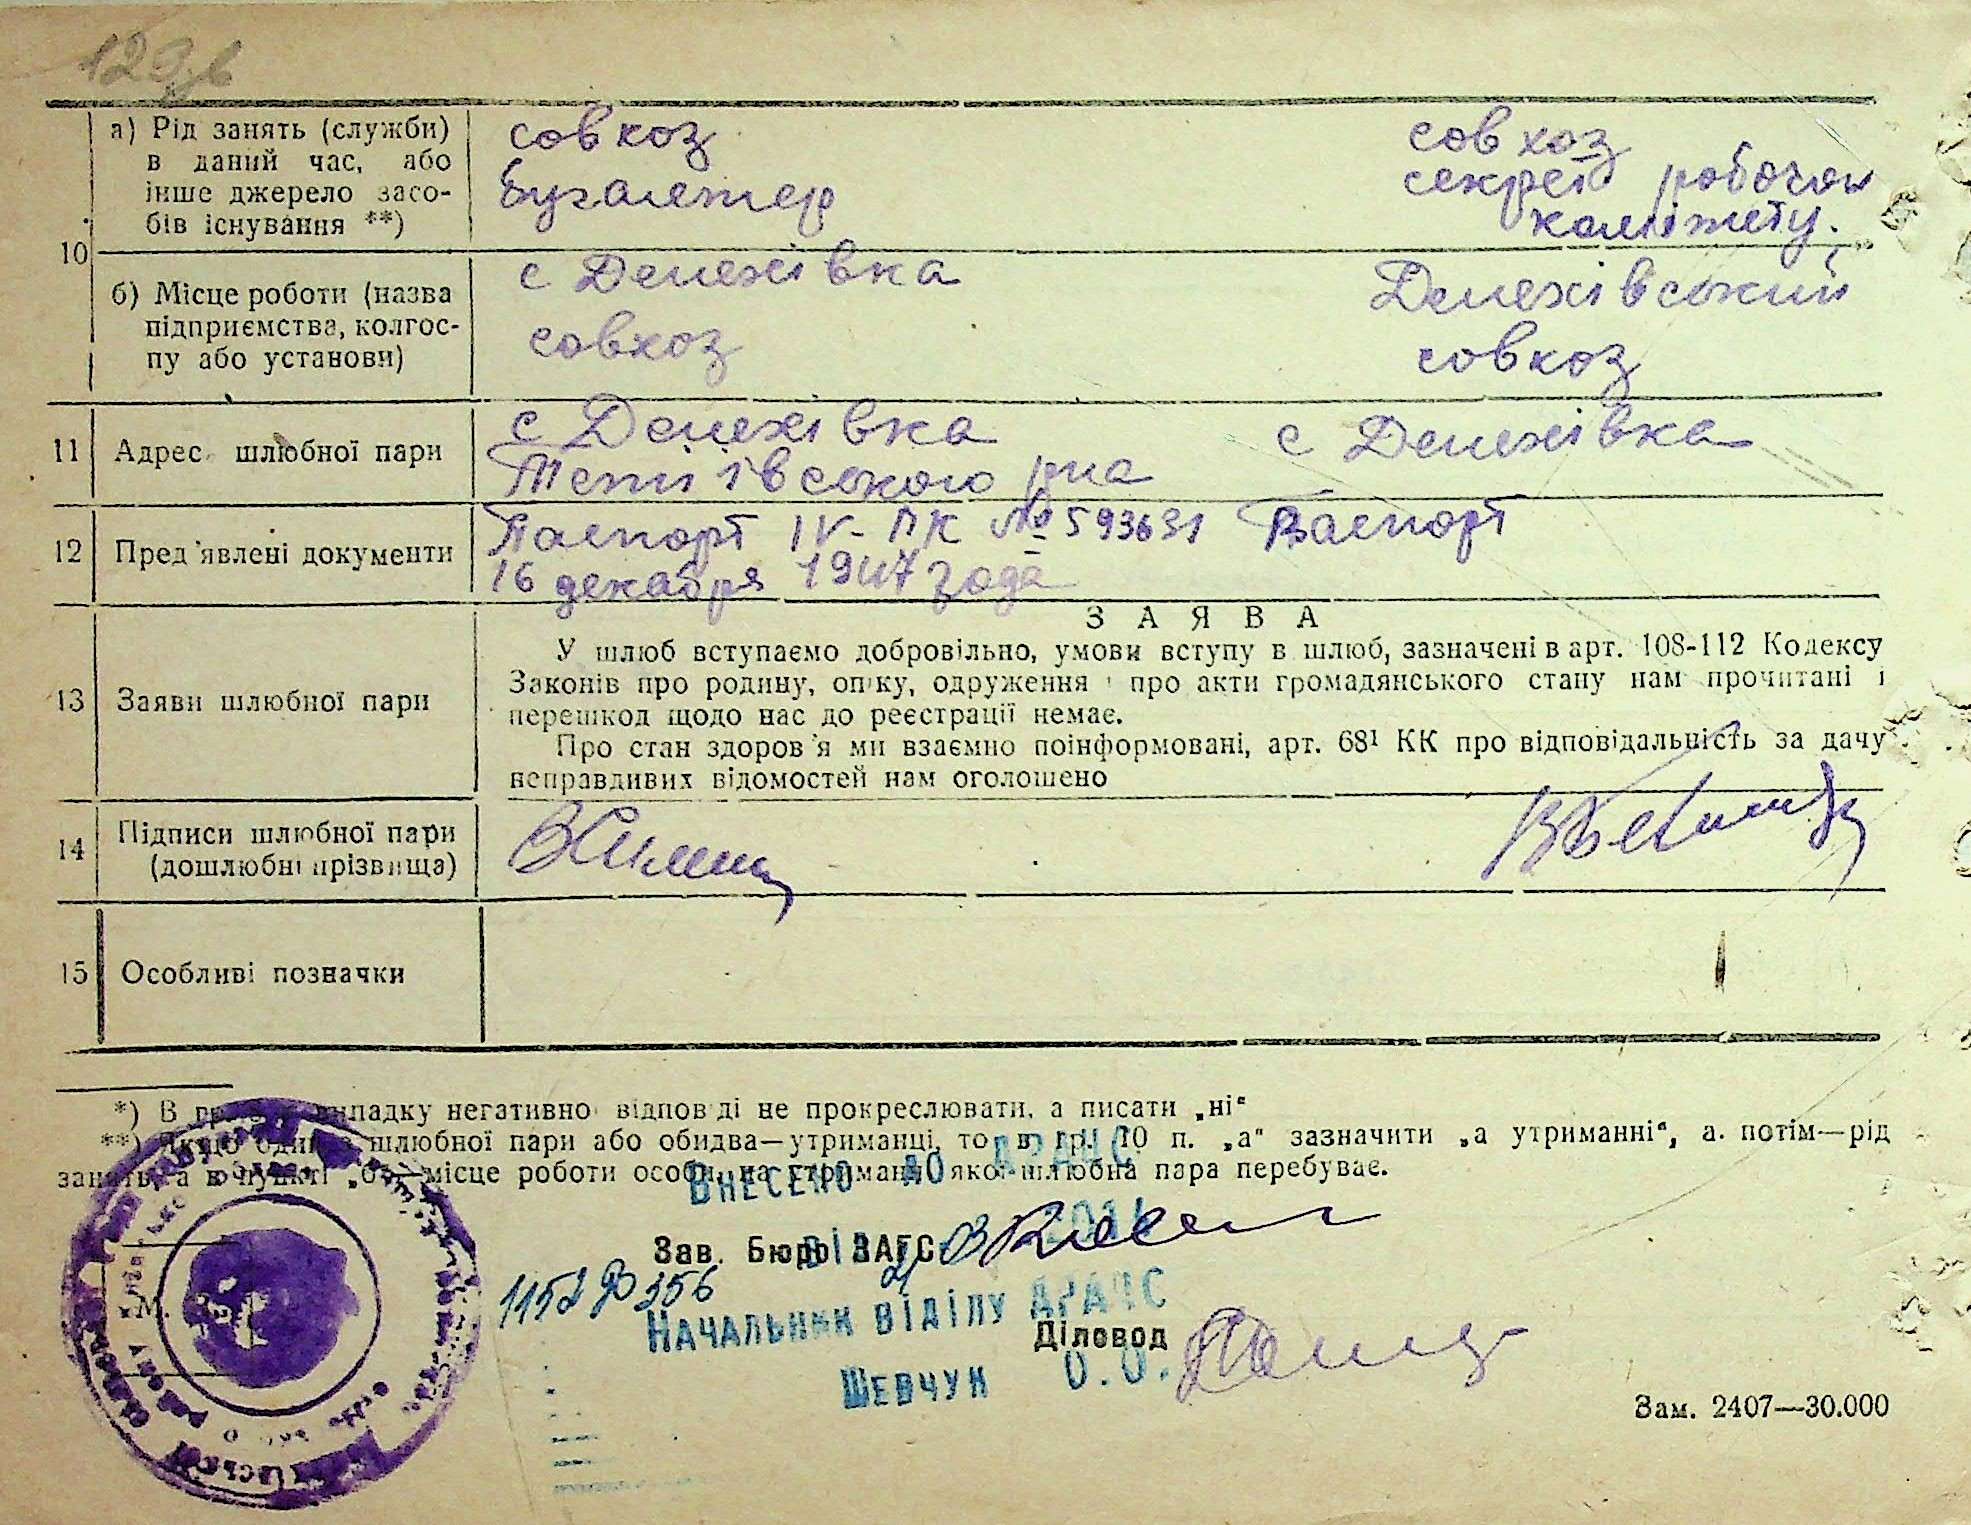 129зв
а) Рід занять (служби) в даний час, або інше джерело засобів існування **)
совхоз
бугалтер
совхоз
секрет робочому
комітету.
10
б) Місце роботи (назва підприємства, колгоспу або установи)
с Денехівка
совхоз
Денехівський
совхоз
11
Адрес шлюбної пари
с Денехівка
Тетіївського р-на
с Денехівка
12
Пред'явлені документи
Паспорт IV-ПК № 593631
16 декабря 1947 года
Паспорт
13
Заяви шлюбної пари
ЗАЯВА
У шлюб вступаємо добровільно, умови вступу в шлюб, зазначені в арт. 108-112 Кодексу
Законів про родину, опіку, одруження і про акти громадянського стану нам прочитані і
перешкод щодо нас до реєстрації немає.
Про стан здоров'я ми взаємно поінформовані, арт. 68¹ КК про відповідальність за дачу
неправдивих відомостей нам оголошено
14
Підписи шлюбної пари
(дошлюбні прізвища)
15
Особливі позначки
*) В разі випадку негативної відповіді не прокреслювати, а писати „ні“
**) Якщо один з шлюбної пари або обидва—утриманці, то в гр. 10 п. „а“ зазначити „а утриманні“, а потім—рід
занять, а в пункті „б“—місце роботи особи, на утриманні якої шлюбна пара перебуває.
Внесено до ДРАЦС
Зав. Бюро ЗАГС
Начальник відділу ДРАЦС
Діловод
Шевчук О.О.
М.
Зам. 2407—30.000